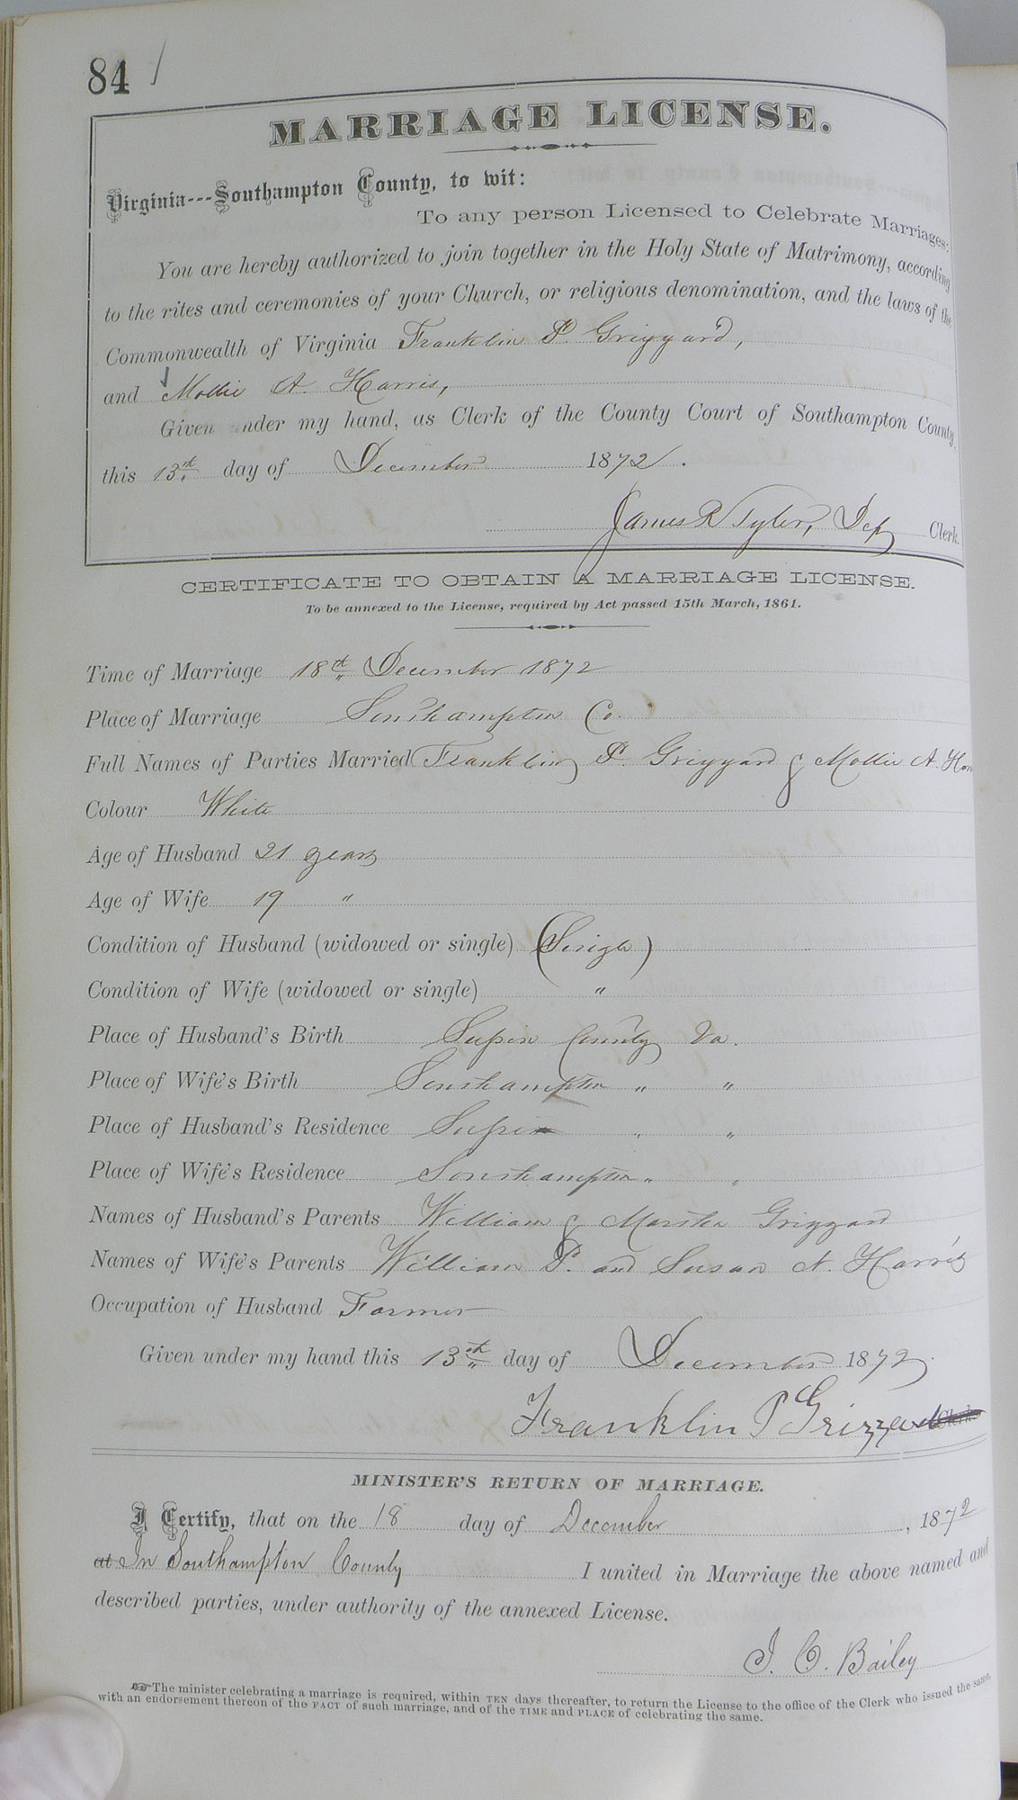 84
MARRIAGE LICENSE.
Virginia---Southampton County, to wit:
To any person Licensed to Celebrate Marriages:
You are hereby authorized to join together in the Holy State of Matrimony, according
to the rites and ceremonies of your Church, or religious denomination, and the laws of the
Commonwealth of Virginia Franklin P. Griggard,
and Mollie A. Harris,
Given under my hand, as Clerk of the County Court of Southampton County,
this 13th day of December 1872.
James R Tyler, Dep Clerk.
CERTIFICATE TO OBTAIN A MARRIAGE LICENSE.
To be annexed to the License, required by Act passed 15th March, 1861.
Time of Marriage 18th December 1872
Place of Marriage Southampton Co.
Full Names of Parties Married Franklin P. Griggard & Mollie A. Har
Colour White
Age of Husband 21 years
Age of Wife 19 "
Condition of Husband (widowed or single) (Single)
Condition of Wife (widowed or single) "
Place of Husband's Birth County Va.
Place of Wife's Birth Southampton " "
Place of Husband's Residence " "
Place of Wife's Residence Southampton " "
Names of Husband's Parents William & Martha Griggard
Names of Wife's Parents William P. and Susan A. Harris
Occupation of Husband Farmer
Given under my hand this 13th day of December 1872
Franklin P Grizzard Clerk.
MINISTER'S RETURN OF MARRIAGE.
I Certify, that on the 18 day of December, 1872
at In Southampton County I united in Marriage the above named and
described parties, under authority of the annexed License.
J. C. Bailey
The minister celebrating a marriage is required, within TEN days thereafter, to return the License to the office of the Clerk who issued the same,
with an endorsement thereon of the FACT of such marriage, and of the TIME and PLACE of celebrating the same.